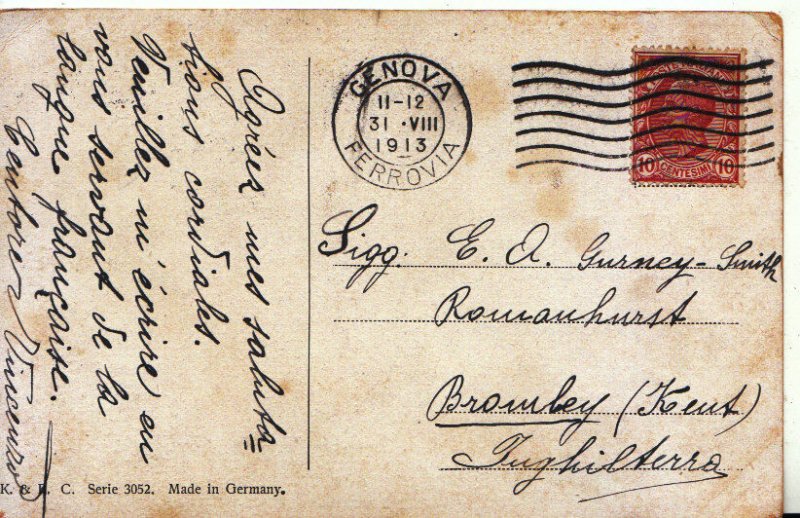 Agréez mes saluta=
tions cordiales.
Veuillez m'écrire en
vous servant de la
langue française.
Cantore Vincenzo
GENOVA
11-12
31 · VIII
1913
FERROVIA
POSTE ITALIANE
10 10
CENTESIMI
Sigg. E. A. Gurney-Smith
Romanhurst
Bromley (Kent)
Inghilterra
K. & B. C. Serie 3052. Made in Germany.